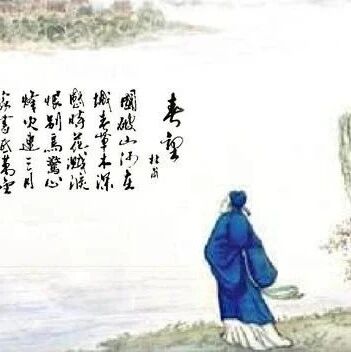 春望
杜甫
國破山河在
城春草木深
感時花濺淚
恨別鳥驚心
烽火連三月
家書抵萬金